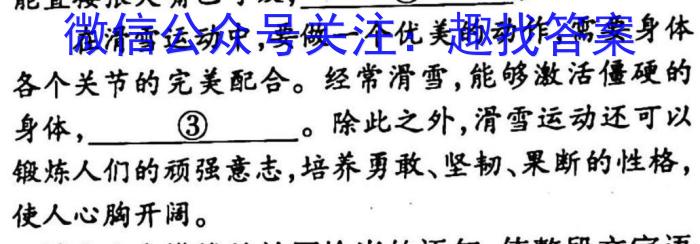 微信公众号关注:趣找答案
在滑雪运动中,要做一个优美的动作,需要身体
各个关节的完美配合。经常滑雪,能够激活僵硬的
身体,③。除此之外,滑雪运动还可以
锻炼人们的顽强意志,培养勇敢、坚韧、果断的性格,
使人心胸开阔。